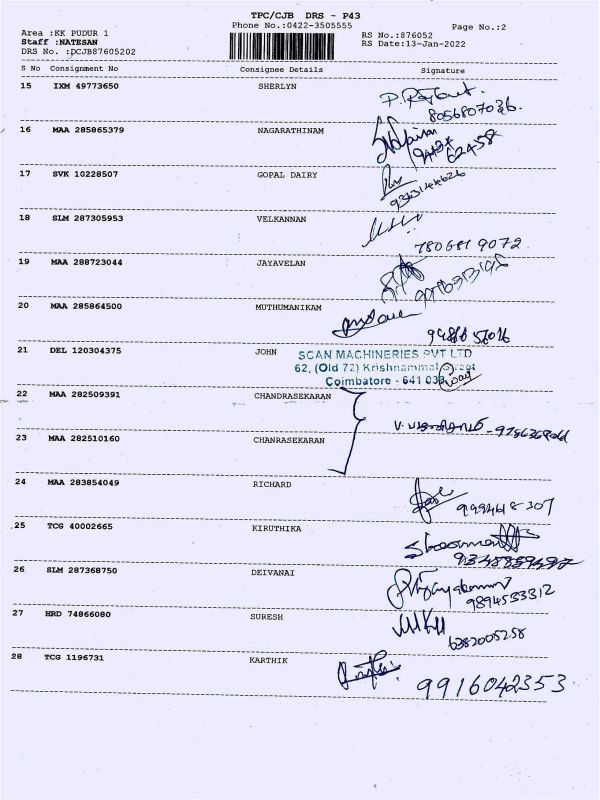 TPC/CJB DRS - P43
Phone No.:0422-3505555
Page No.:2
Area :KK PUDUR 1
RS No.:876052
Staff :NATESAN
RS Date:13-Jan-2022
DRS No. :pCJB87605202
S No Consignment No Consignee Details Signature
15 IXM 49773650 SHERLYN
8056807026.
16 MAA 285865379 NAGARATHINAM
62458
17 SVK 10228507 GOPAL DAIRY
18 SLM 287305953 VELKANNAN
7806819072
19 MAA 288723044 JAYAVELAN
20 MAA 285864500 MUTHUMANIKAM
21 DEL 120304375 JOHN
SCAN MACHINERIES PVT LTD
62, (Old 72) Krishnammal Street
Coimbatore - 641 038
22 MAA 282509391 CHANDRASEKARAN
23 MAA 282510160 CHANRASEKARAN
24 MAA 283854049 RICHARD
9994618307
25 TCG 40002665 KIRUTHIKA
26 SLM 287368750 DEIVANAI
9894533312
27 HRD 74866080 SURESH
6382005258
28 TCG 1196731 KARTHIK
9916042353